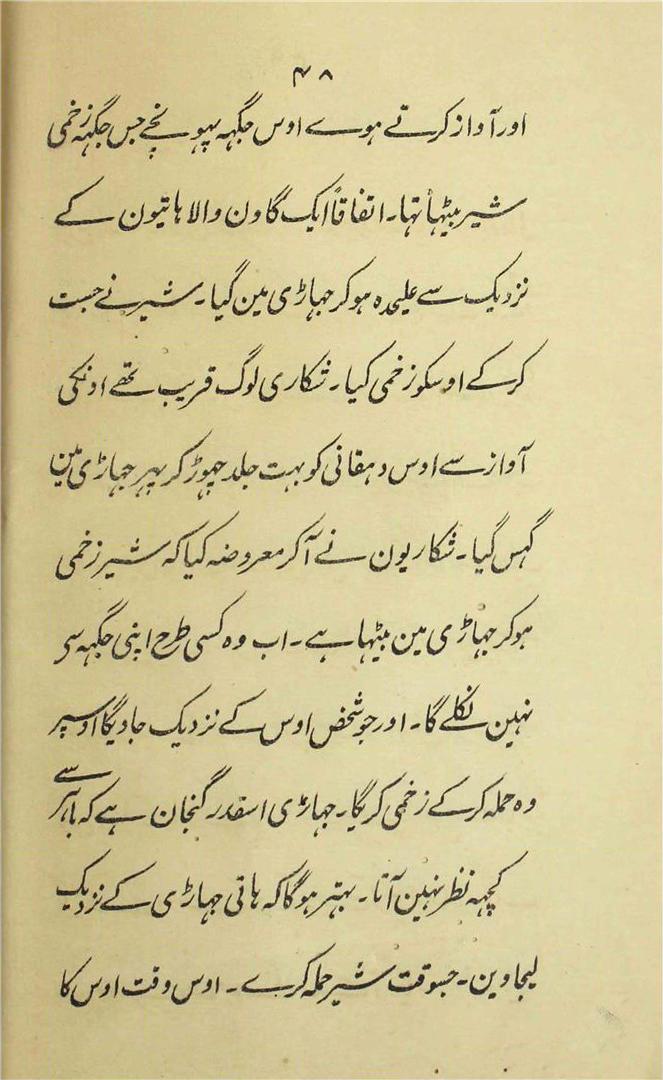 ۴۸
اور آواز کرتے ہوے اوس جگہہ پہونچے جس جگہہ زخمی
شیر بیٹہا تہا۔ اتفاقاً ایک گاون والا ہاتیون کے
نزدیک سے علیحدہ ہوکر جہاڑی مین گیا۔ شیر نے جست
کرکے اوسکو زخمی کیا۔ شکاری لوگ قریب تھے اونکی
آواز سے اوس دہقانی کو بہت جلد چہوڑ کر پہر جہاڑی مین
گہس گیا۔ شکاریون نے آکر معروضہ کیا کہ شیر زخمی
ہوکر جہاڑی مین بیٹہا ہے۔ اب وہ کسی طرح اپنی جگہہ سے
نہین نکلے گا۔ اور جو شخص اوس کے نزدیک جاویگا اوسپر
وہ حملہ کرکے زخمی کریگا۔ جہاڑی اسقدر گنجان ہے کہ باہر سے
کچہہ نظر نہین آتا۔ بہتر ہوگا کہ ہاتی جہاڑی کے نزدیک
لیجاوین۔ جسوقت شیر حملہ کرے۔ اوس وقت اوس کا